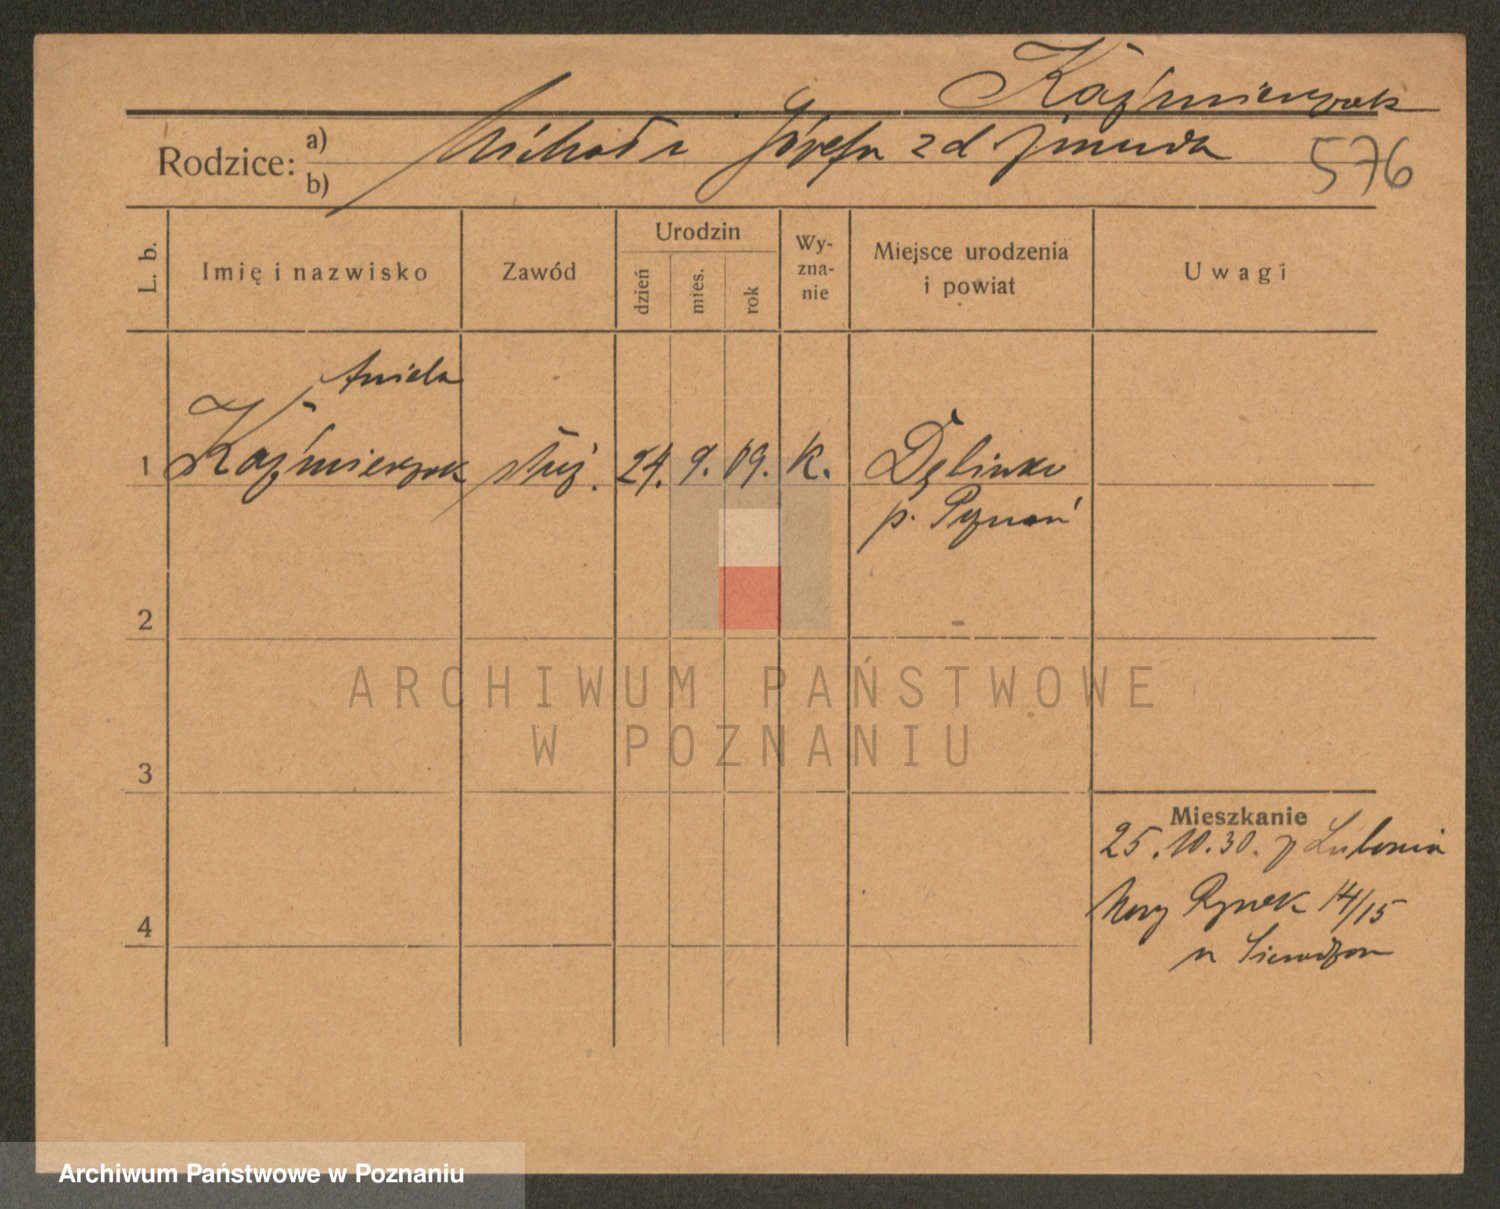 Kaźmierczak
Rodzice: a) Michał i Józefa z d Żmuda
b)
576
L. b.
Imię i nazwisko
Zawód
Urodzin
dzień
mies.
rok
Wy-
zna-
nie
Miejsce urodzenia
i powiat
Uwagi
Aniela
1 Kaźmierczak służ. 24. 9. 09. K.
p. Poznań
2
3
4
ARCHIWUM PAŃSTWOWE
W POZNANIU
Mieszkanie
25.10.30. z Lubonia
Nowy Rynek 14/15
Archiwum Państwowe w Poznaniu